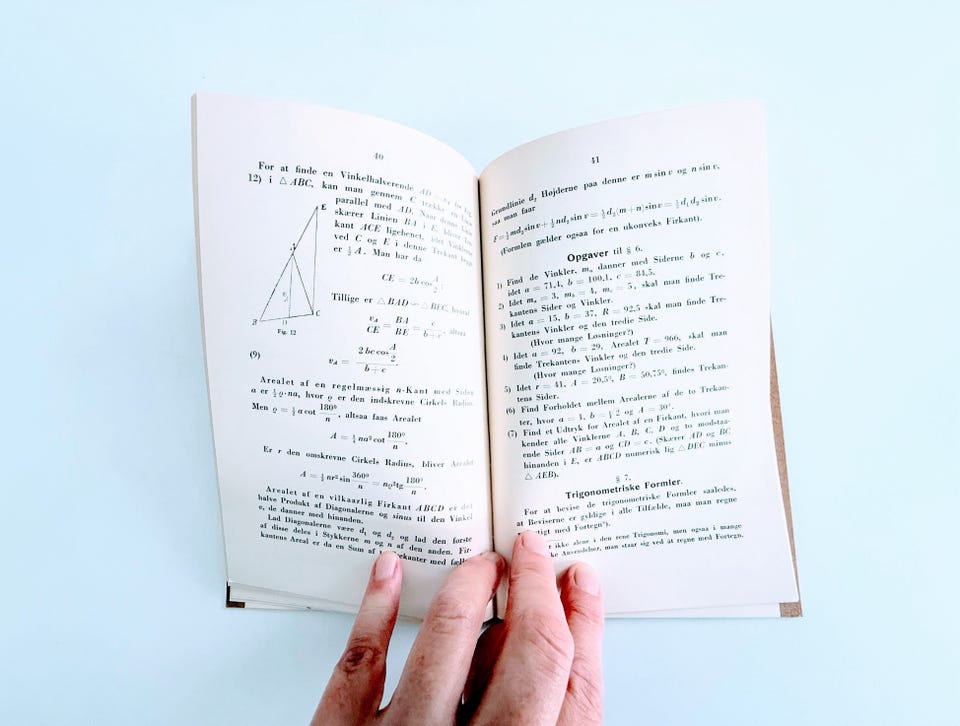 40
For at finde en Vinkelhalverende AD = v_A (se Fig.
12) i △ABC, kan man gennem C trække en Linie
parallel med AD. Naar denne Linie
skærer Linien BA i E, bliver Tre-
kant ACE ligebenet, idet Vinklerne
ved C og E i denne Trekant begge
er ½ A. Man har da
CE = 2b cos A/2;
Tillige er △BAD ∽ △BEC, hvoraf
v_A/CE = BA/BE = c/(b + c), altsaa
(9) v_A = 2bc cos A/2 / (b + c).
E
A
B
D
C
Fig. 12
Arealet af en regelmæssig n-Kant med Siden
a er ½ ϱ·na, hvor ϱ er den indskrevne Cirkels Radius.
Men ϱ = ½ a cot 180°/n, altsaa faas Arealet
A = ¼ na² cot 180°/n.
Er r den omskrevne Cirkels Radius, bliver Arealet
A = ½ nr² sin 360°/n = nϱ² tg 180°/n.
Arealet af en vilkaarlig Firkant ABCD er det
halve Produkt af Diagonalerne og sinus til den Vinkel
v, de danner med hinanden.
Lad Diagonalerne være d₁ og d₂ og lad den første
af disse deles i Stykkerne m og n af den anden. Fir-
kantens Areal er da en Sum af Trekanter med fælles
41
Grundlinie d₂ Højderne paa denne er m sin v og n sin v,
saa man faar
F = ½ md₂ sin v + ½ nd₂ sin v = ½ d₂(m + n) sin v = ½ d₁d₂ sin v.
(Formlen gælder ogsaa for en ukonveks Firkant).
Opgaver til § 6.
1) Find de Vinkler, m_a danner med Siderne b og c,
idet a = 71,4, b = 100,1, c = 84,5.
2) Idet m_a = 3, m_b = 4, m_c = 5, skal man finde Tre-
kantens Sider og Vinkler.
3) Idet a = 15, b = 37, R = 92,5 skal man finde Tre-
kantens Vinkler og den tredie Side.
(Hvor mange Løsninger?)
4) Idet a = 92, b = 29, Arealet T = 966, skal man
finde Trekantens Vinkler og den tredie Side.
(Hvor mange Løsninger?)
5) Idet r = 41, A = 20,5°, B = 50,75°, findes Trekan-
tens Sider.
(6) Find Forholdet mellem Arealerne af de to Trekan-
ter, hvor a = 1, b = √2 og A = 30°.
(7) Find et Udtryk for Arealet af en Firkant, hvori man
kender alle Vinklerne A, B, C, D og to modstaa-
ende Sider AB = a og CD = c. (Skærer AD og BC
hinanden i E, er ABCD numerisk lig △DEC minus
△AEB).
§ 7.
Trigonometriske Formler.
For at bevise de trigonometriske Formler saaledes,
at Beviserne er gyldige i alle Tilfælde, maa man regne
med Fortegn*).
ikke alene i den rene Trigonomi, men ogsaa i mange
Anvendelser, man staar sig ved at regne med Fortegn.